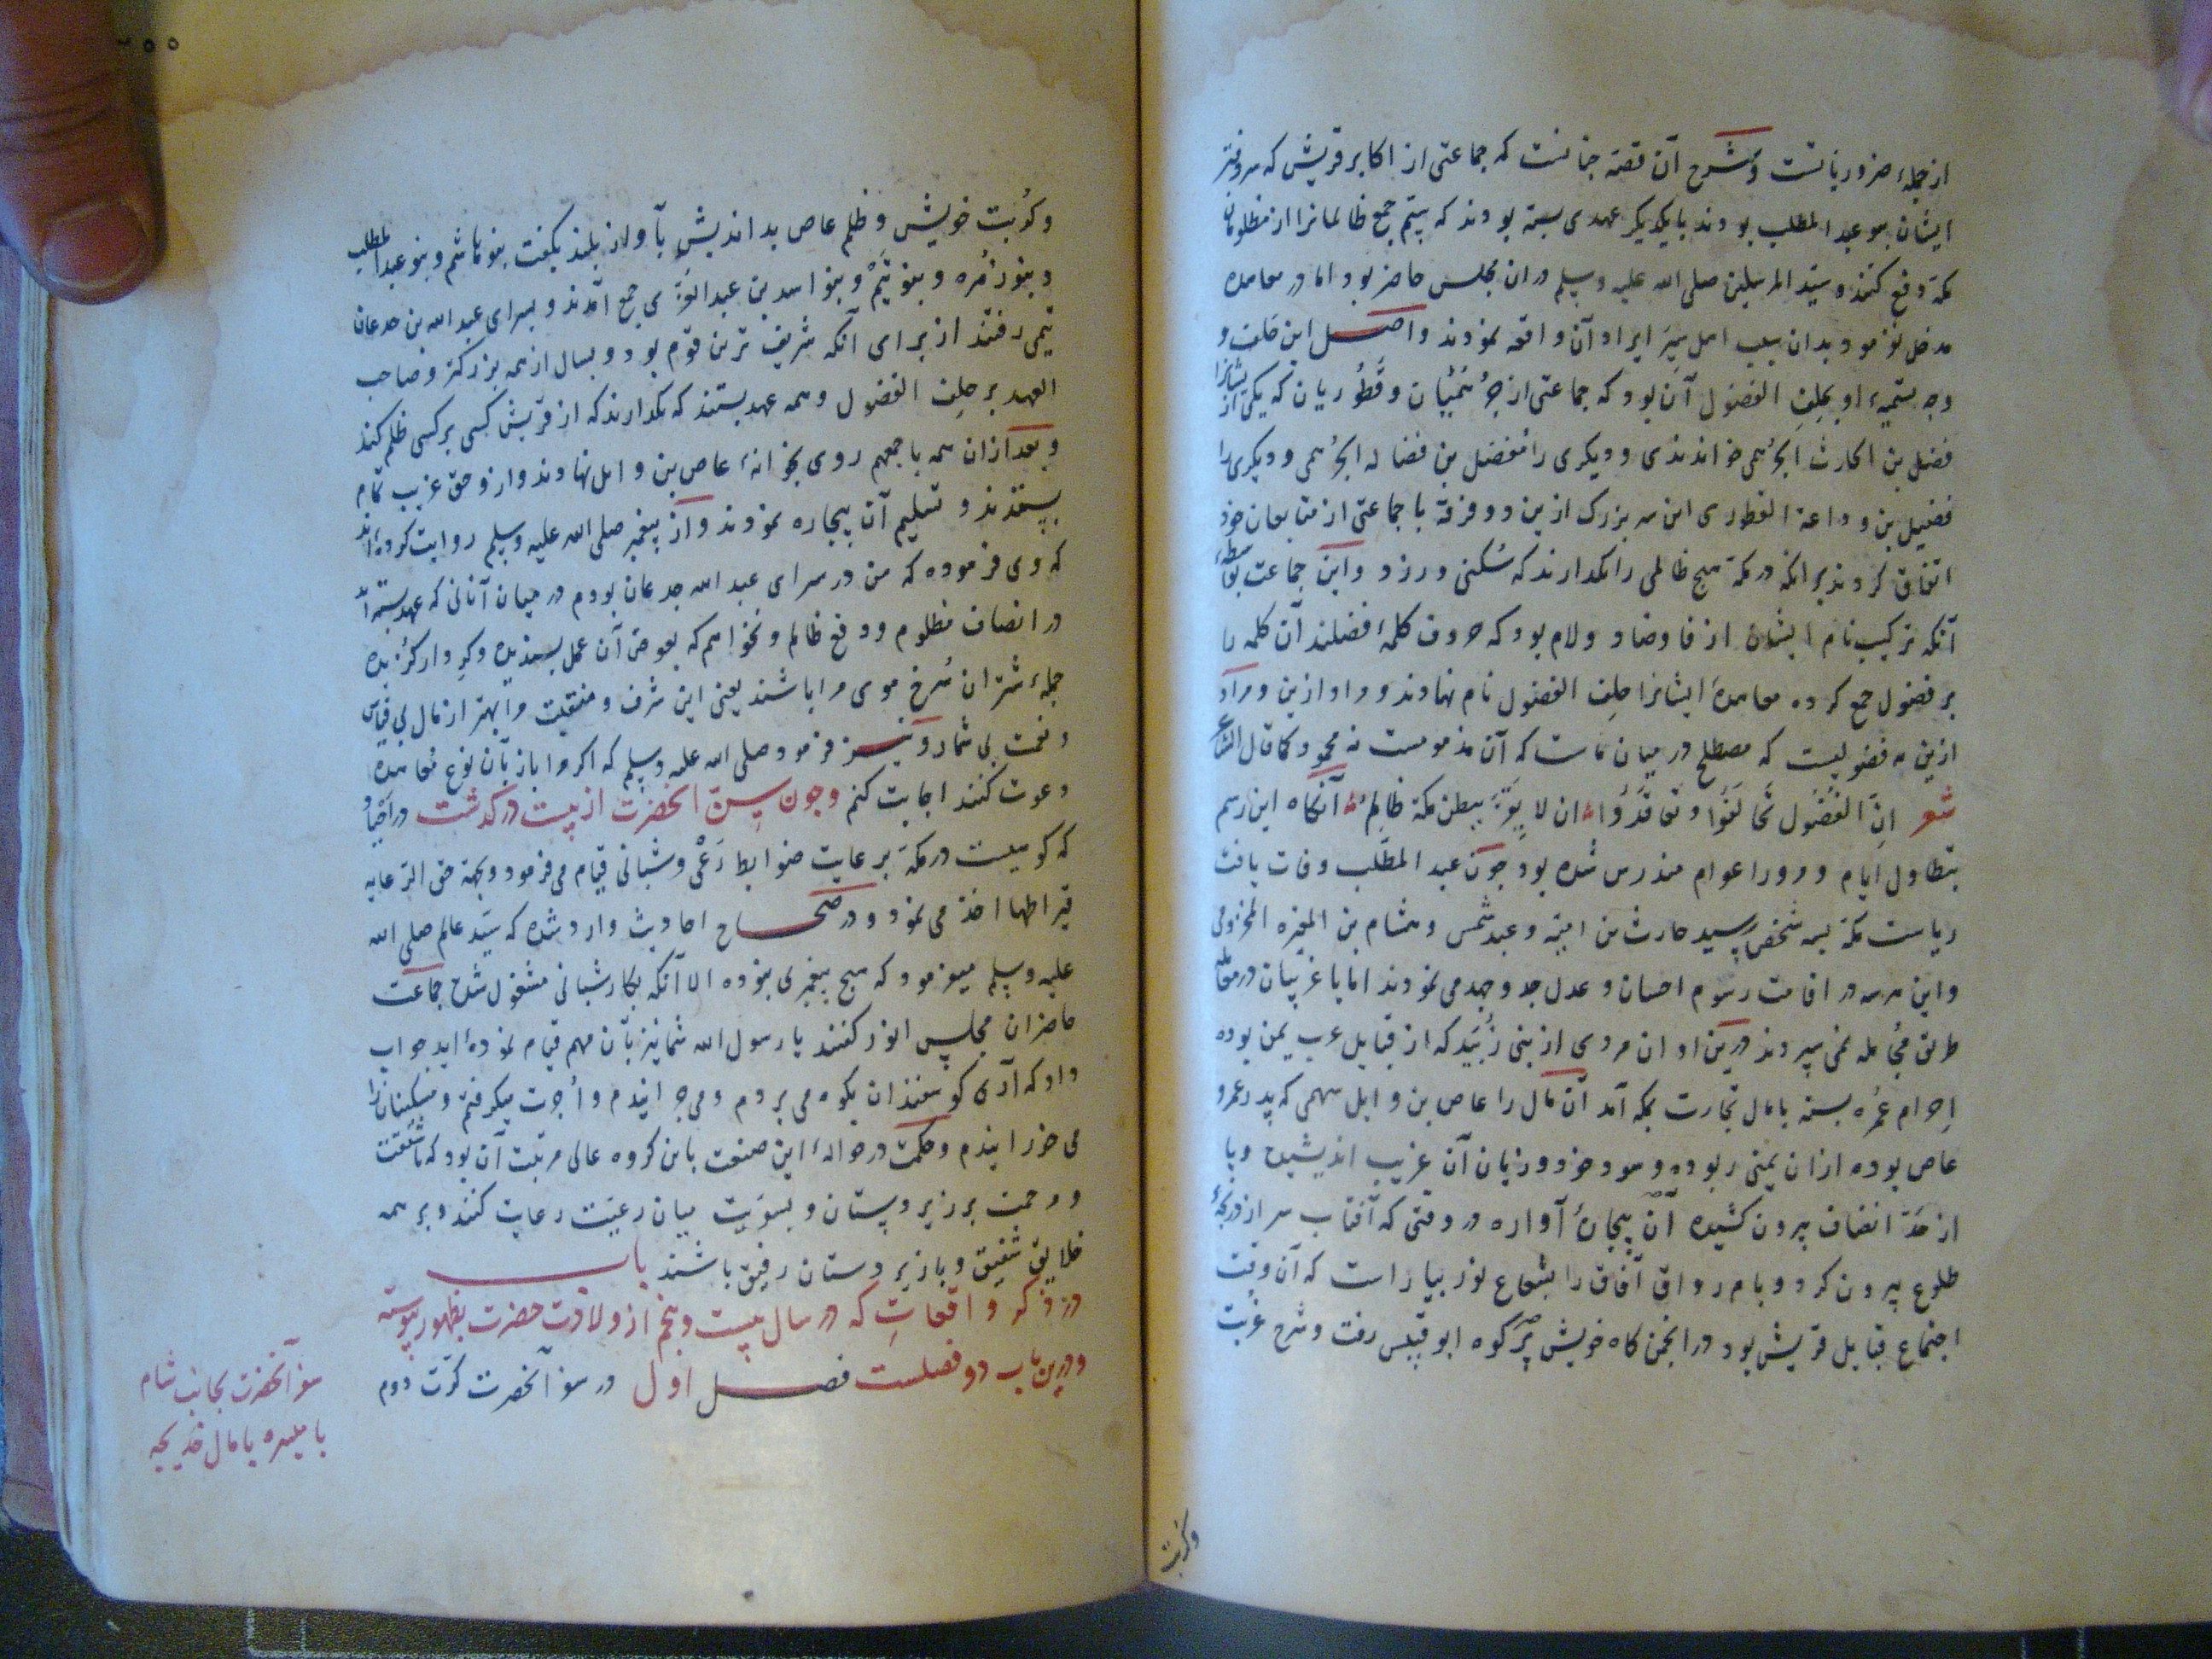 از جملهٔ ضروریاتست و شرح آن قصه چنانست که جماعتی از اکابر قریش که سر دفتر
ایشان بنو عبد المطلب بودند با یکدیگر عهدی بسته بودند که ستم جمیع ظالمانرا از مظلومان
مکه دفع کنند و سید المرسلین صلی الله علیه وسلم در ان مجلس حاضر بود اما در معاهده
مدخل نفرمود بدان سبب اهل سیر ایراد آن واقعه نمودند واصل این حلف و
وجه تسمیهٔ او بحلف الفضول آن بود که جماعتی از جرهمیان و قطوریان که یکی از ایشانرا
فضل بن الحارث الجرهمی خواندندی و دیگری را مفضل بن فضاله الجرهمی و دیگری را
فضیل بن وداعة القطوری این سه بزرگ ازین دو فرقه با جماعتی از متابعان خود
اتفاق کردند بر انکه در مکه هیچ ظالمی را نکدارند که سکنی ورزد و این جماعت بواسطهٔ
آنکه ترکیب نام ایشان از فا و ضاد و لام بود که حروف کلمهٔ فضلند آن کلمه را
بر فضول جمع کرده معاهدهٔ ایشانرا حلف الفضول نام نهادند و مراد ازین و مراد
ازین نه فضولیست که مصطلح در میان ماست که آن مذمومست نه محمود کما قال الشاعر
شعر إنّ الفُضُول تحالَفُوا وتعاقَدُوا ان لا یقرّ ببطن مکة ظالمُ آنکاه این رسم
بتطاول ایام و مرور اعوام مندرس شده بود چون عبد المطلب وفات یافت
ریاست مکه بسه شخص رسید حارث بن امیه و عبد شمس و هشام بن المغیره المخزومی
و این هر سه در اقامت رسوم احسان و عدل جد و جهد می نمودند اما با غریبان در معامله
طریق مجامله نمی سپردند درین اوان مردی از بنی زبید که از قبایل عرب یمن بوده
احرام عمره بسته با مال تجارت بمکه آمد آن مال را عاص بن وایل سهمی که پدر عمرو
عاص بوده ازان یمنی ربوده و سود خود و زیان آن غریب اندیشیده و پا
از حد انصاف بیرون کشیده آن بیچارهٔ آواره در وقتی که آفتاب سر از دریچهٔ
طلوع بیرون کرد و بام رواق آفاق را بشعاع نور بیاراست که آن وقت
اجتماع قبایل قریش بود در انجمن کاه خویش بر کوه ابو قبیس رفت و شرح غربت
وکربت
وکُربت خویش و ظلم عاص بد اندیش بآواز بلند بکفت بنو هاشم و بنو عبد المطلب
و بنو زهره و بنو تیم و بنو اسد بن عبد العزی جمع آمدند و بسرای عبد الله بن جدعان
تیمی رفتند از برای آنکه شریف ترین قوم بود و بسال از همه بزرکتر و صاحب
العهد بر حلف الفضول و همه عهد بستند که نکدارند که از قریش کسی بر کسی ظلم کند
و بعد ازان همه باجمعهم روی بخانهٔ عاص بن وایل نهادند و ازو حق غریب تمام
بستدند و تسلیم آن بیچاره نمودند و از پیغمبر صلی الله علیه وسلم روایت کرده اند
که وی فرموده که من در سرای عبد الله جدعان بودم در میان آنانی که عهد بسته اند
در انصاف مظلوم و دفع ظالم و نخواهم که بعوض آن عمل پسندیده و کردار کزیده
جملهٔ شتران سرخ موی مرا باشند یعنی این شرف و منقبت مرا بهتر از مال بی قیاس
و نعمت بی شمار و نیز فرمود صلی الله علیه وسلم که اکر مرا باز بآن نوع معاهده
دعوت کنند اجابت کنم و چون سن آنحضرت از بیست در کذشت در احیاد
که کوهیست در مکه بر عایت ضوابط رعی و شبانی قیام می فرمود و بجهة حق الرعایه
قیراطها اخذ می نمود و در صحاح احادیث وارد شده که سید عالم صلی الله
علیه وسلم میفرمود که هیچ پیغمبری نبوده الا آنکه بکار شبانی مشغول شده جماعت
حاضران مجلس انور کفتند یا رسول الله شما نیز بآن مهم قیام نموده اید جواب
داد که آری کوسفندان بکوه می بردم و می چرانیدم و اجرت میکرفتم و مسکینانرا
می خورانیدم و حکمت در حوالهٔ این صنعت باین کروه عالی مرتبت آن بود که تا شفقت
و رحمت بر زیر دستان و بسویت میان رعیت رعایت کنند و بر همه
خلایق شفیق و با زیر دستان رفیق باشند باب
در ذکر واقعات که در سال بیست و پنجم از ولادت حضرت بظهور پیوسته
و درین باب دو فصلست فصل اول در سفر آنحضرت کرّت دوم
سفر آنحضرت بجانب شام
با میسره با مال خدیجه